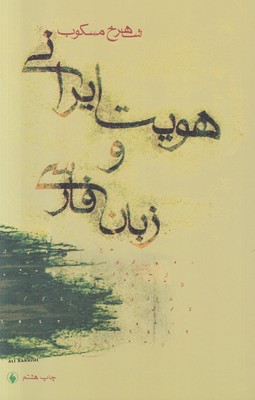 شاهرخ مسکوب
هویت ایرانی
و
زبان فارسی
چاپ هشتم